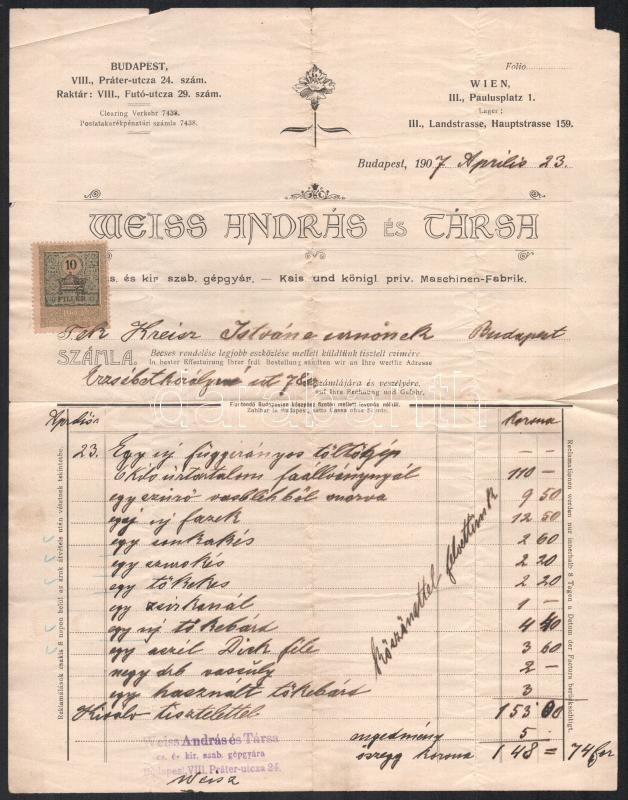 BUDAPEST,
VIII., Práter-utcza 24. szám.
Raktár: VIII., Futó-utcza 29. szám.
Clearing Verkehr 7438.
Postatakarékpénztári számla 7438.
Folio
WIEN,
III., Paulusplatz 1.
Lager:
III., Landstrasse, Hauptstrasse 159.
Budapest, 1907 Április 23.
WEISS ANDRÁS ÉS TÁRSA
cs. és kir szab. gépgyár. — Kais und königl priv. Maschinen-Fabrik.
10
FILLÉR
Tek Kreisz Istvánné urnőnek Budapest
SZÁMLA.
Becses rendelése legjobb eszközlése mellett küldtünk tisztelt czimére
In bester Effectuirung Ihrer frdl. Bestellung sandten wir an Ihre werthe Adresse
Erzsébet királyné út 78
számlájára és veszélyére.
auf Ihre Rechnung und Gefahr.
Fizetendő Budapesten készpénz fizetés mellett levonás nélkül.
Zahlbar in Budapest netto Cassa ohne Sconto.
Április
Korona
23. Egy új függirányos töltőgép — —
6 Kiló űrtartalom faállványnyál 110 —
egy szűrő vasblehből marva 9 50
egy új fazék 12 50
egy sonkakés 2 60
egy 2 20
egy tőkekés 2 20
egy zsirkanál 1 —
egy új tőkebárd 4 40
egy aczél Dick féle 3 60
négy drb vassúly 2 —
egy használt tőkebárd 3
Kiváló tisztelettel 153 00
engedmény 5
összeg korona 148 = 74 for
Köszönettel felvettünk
Weiss András és Társa
cs. és kir. szab. gépgyára
Budapest, VIII. Práter-utcza 24.
Weisz
Reklamálások csakis 8 napon belül az áruk átvétele után vétetnek tekintetbe.
Reclamationen werden nur innerhalb 8 Tagen a Datum der Factura berücksichtigt.
darabanth